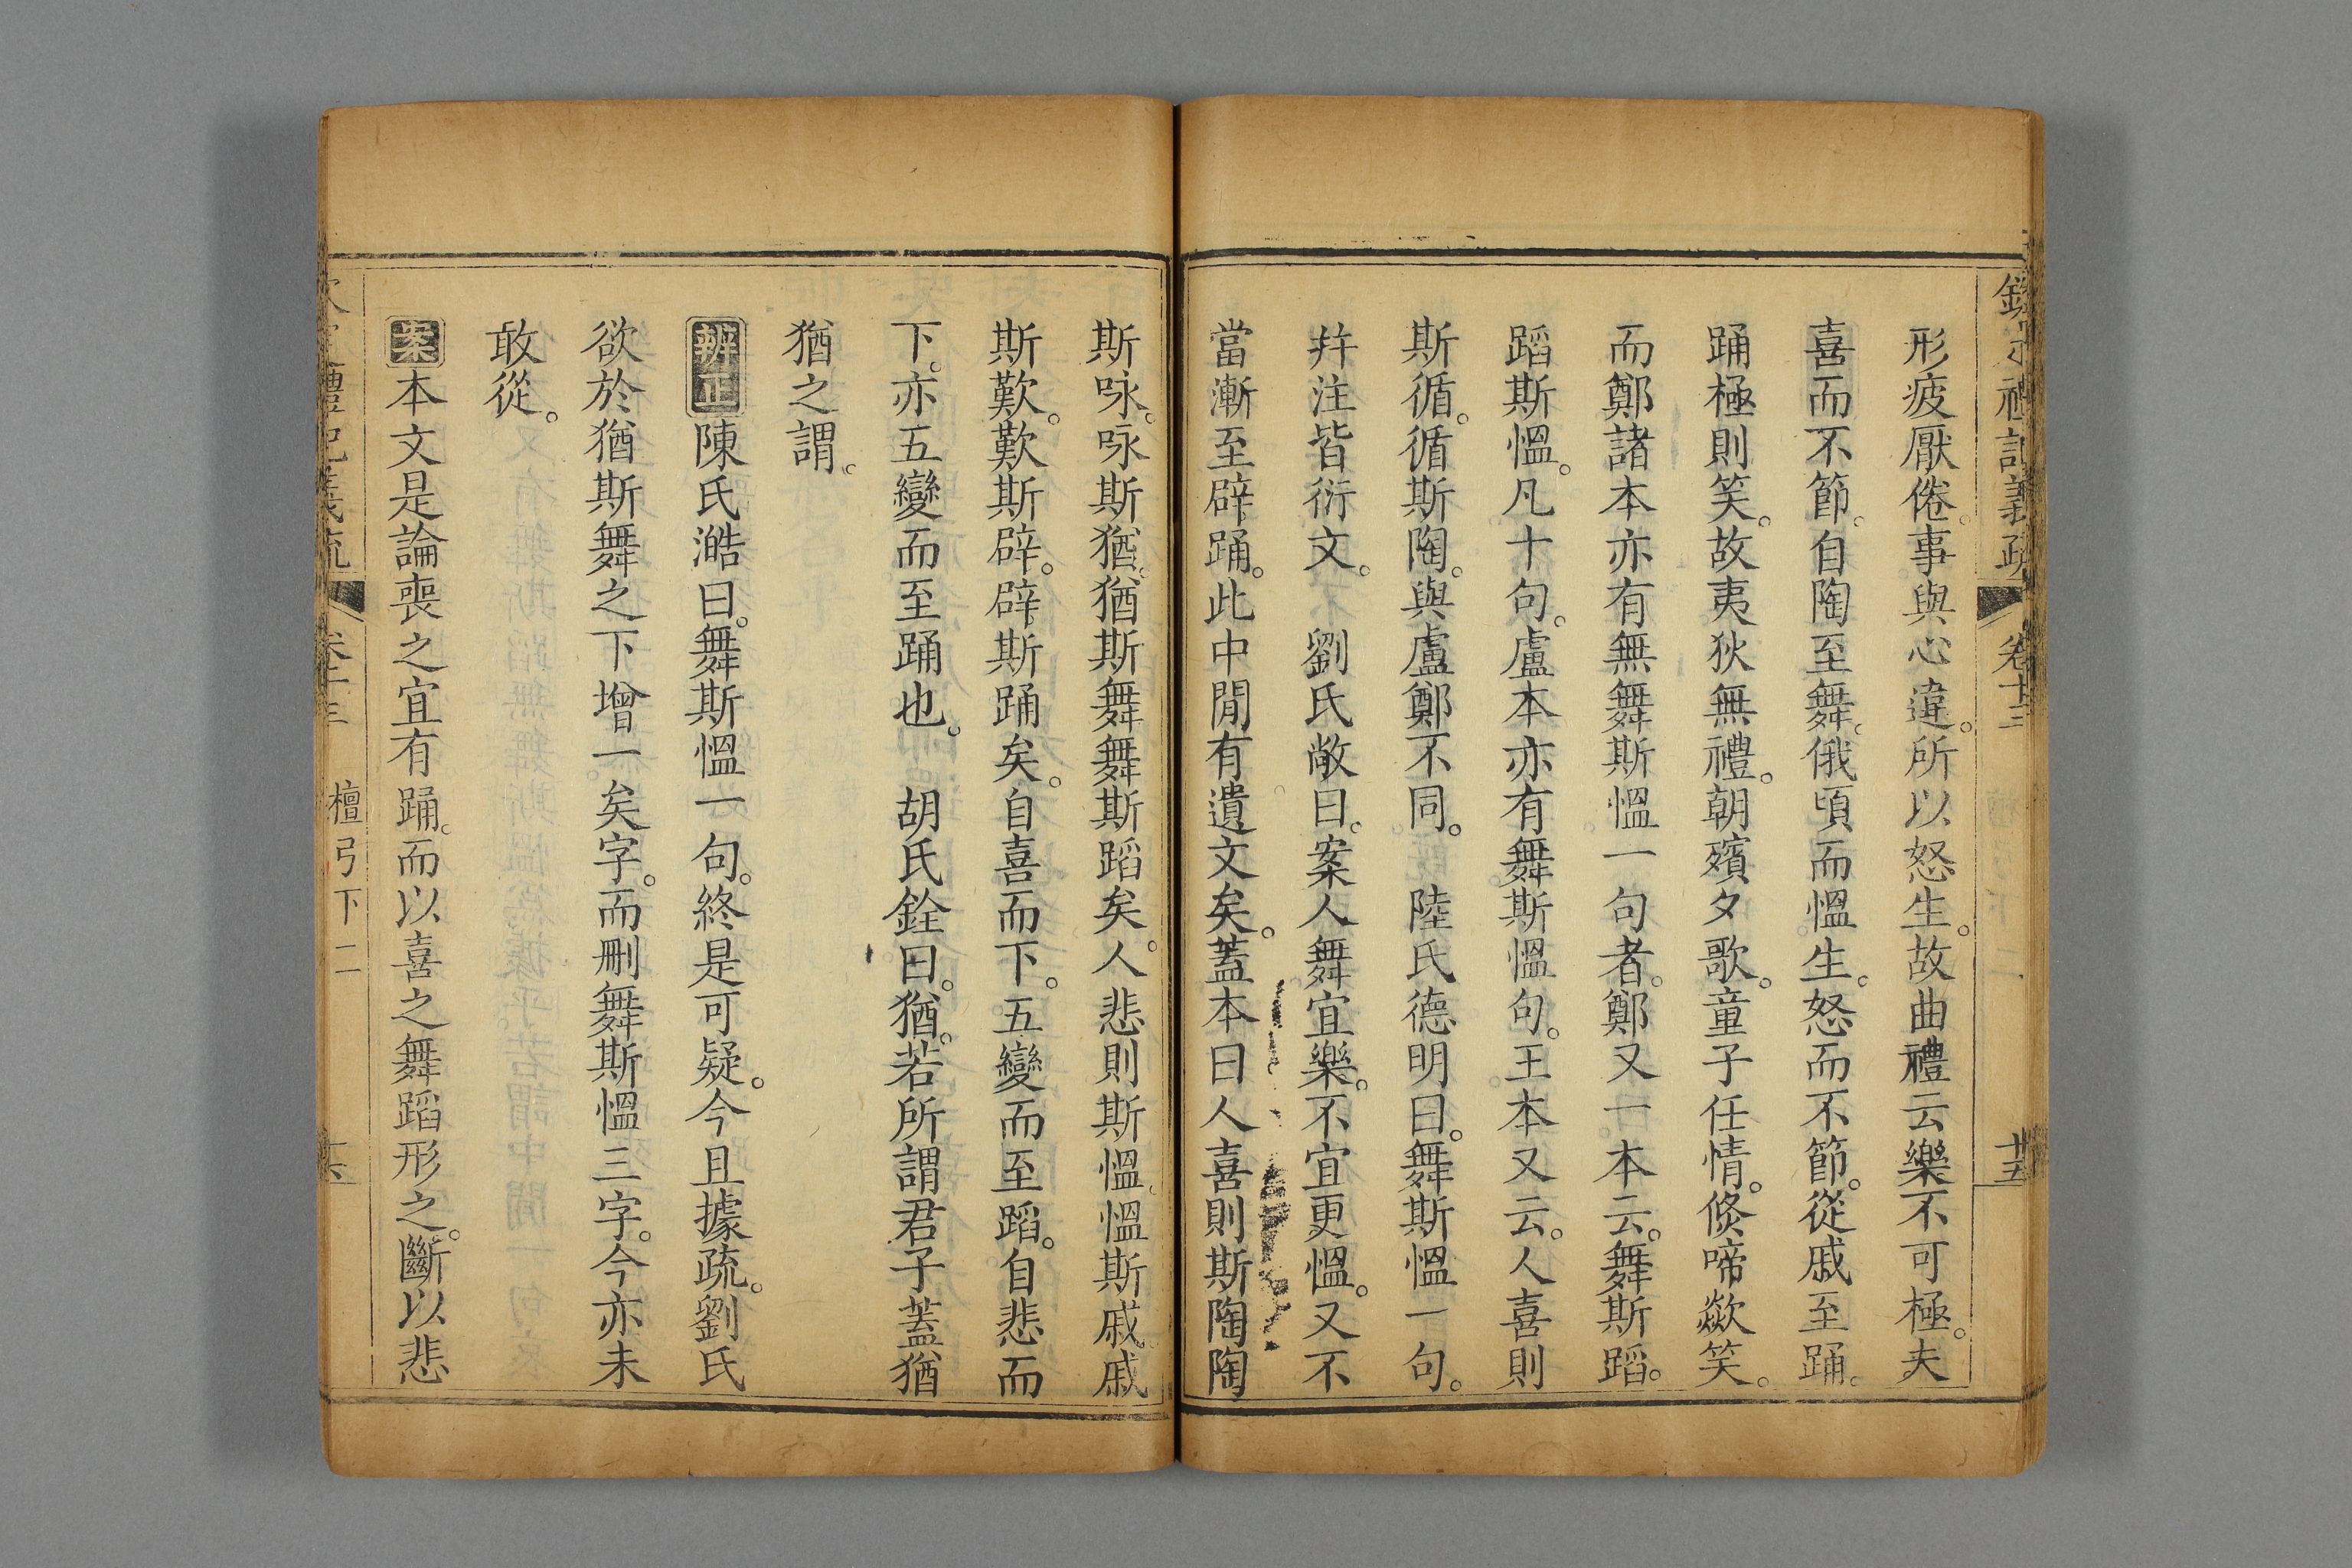 禮記義疏 卷十三 十五
形疲厭倦。事與心違。所以怒生。故曲禮云樂不可極。夫
喜而不節。自陶至舞。俄頃而慍生。怒而不節。從戚至踊。
踊極則笑。故夷狄無禮。朝殯夕歌。童子任情。倐啼歘笑。
而鄭諸本亦有無舞斯慍一句者。鄭又一本云。舞斯蹈。
蹈斯慍。凡十句。盧本亦有舞斯慍句。王本又云。人喜則
斯循。循斯陶。與盧鄭不同。 陸氏德明曰。舞斯慍一句。
并注皆衍文。 劉氏敞曰。案人舞宜樂。不宜更慍。又不
當漸至辟踊。此中閒有遺文矣。蓋本曰人喜則斯陶陶
斯咏。咏斯猶。猶斯舞舞斯蹈矣。人悲則斯慍慍斯戚戚
斯歎。歎斯辟。辟斯踊矣。自喜而下。五變而至蹈。自悲而
下。亦五變而至踊也。 胡氏銓曰。猶。若所謂君子蓋猶
猶之謂。
辨正陳氏澔曰。舞斯慍一句。終是可疑。今且據疏。劉氏
欲於猶斯舞之下增一矣字。而刪舞斯慍三字。今亦未
敢從。
案本文是論喪之宜有踊。而以喜之舞蹈形之。斷以悲
禮記義疏 卷十三 檀弓下二